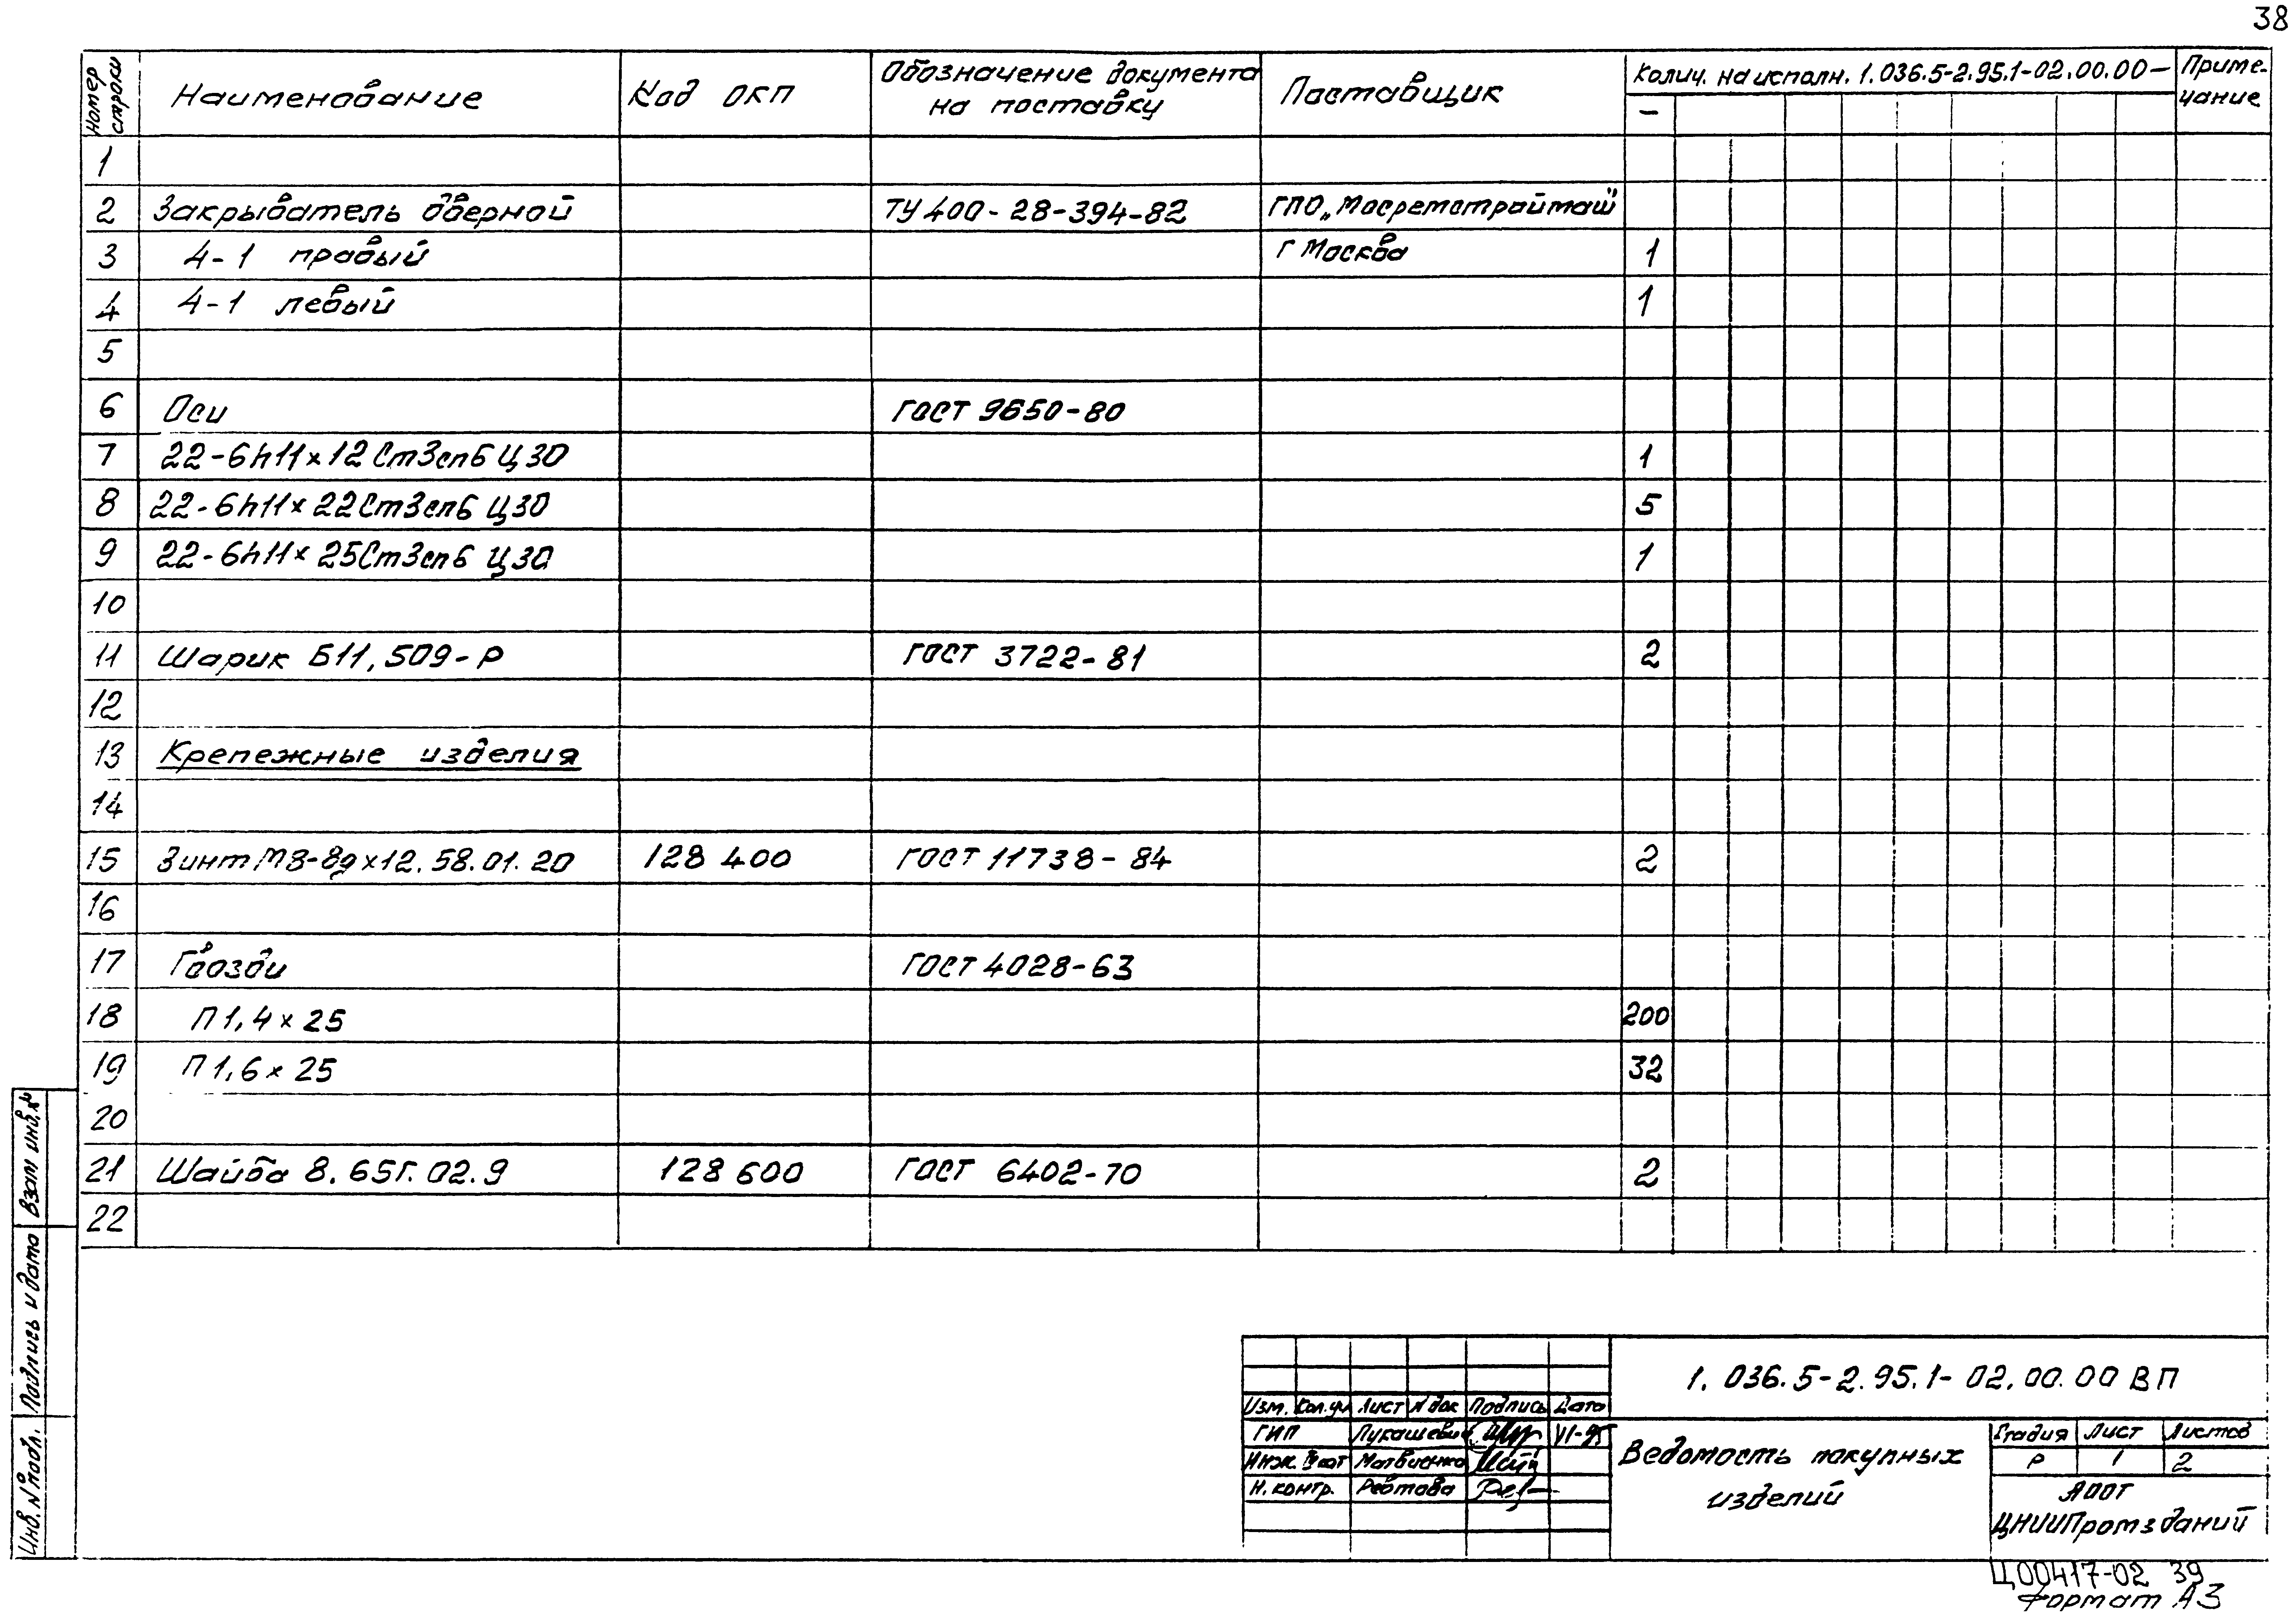 38
Номер строки Наименование Код ОКП Обозначение документа на поставку Поставщик Колич. на исполн. 1.036.5-2.95.1-02.00.00- Приме-чание
-
1
2 Закрыватель дверной ТУ 400-28-394-82 ГПО „Мосремстроймаш"
3 4-1 правый г Москва 1
4 4-1 левый 1
5
6 Оси ГОСТ 9650-80
7 22-6h11×12 Ст3сп6 Ц30 1
8 22-6h11×22 Ст3сп6 Ц30 5
9 22-6h11×25 Ст3сп6 Ц30 1
10
11 Шарик Б11,509-Р ГОСТ 3722-81 2
12
13 Крепежные изделия
14
15 Винт М8-8g×12.58.01.20 128 400 ГОСТ 11738-84 2
16
17 Гвозди ГОСТ 4028-63
18 П1,4×25 200
19 П1,6×25 32
20
21 Шайба 8.65Г.02.9 128 600 ГОСТ 6402-70 2
22
Взам инв.№
Подпись и дата
Инв.№подл.
1.036.5-2.95.1-02.00.00 ВП
Изм. Кол.уч Лист №док Подпись Дата
ГИП Лукашевич VI-95
Инж. Iкат Матвиенко
Н.контр. Ревтова
Ведомость покупных изделий
Стадия Лист Листов
Р 1 2
АООТ
ЦНИИПромзданий
Ц00417-02 39
Формат А3